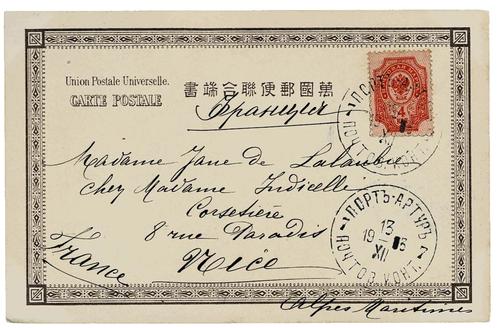 Union Postale Universelle.
CARTE POSTALE
書端合聯便郵國萬
Франція
Madame Jane de
Chez Madame Indicelle
Corsetière
8 rue Paradis
Nice
France
Alpes Maritimes
4
ПОРТЪ-АРТУРЪ
13
XII
ПОЧТ. ТЕЛ. КОНТ.